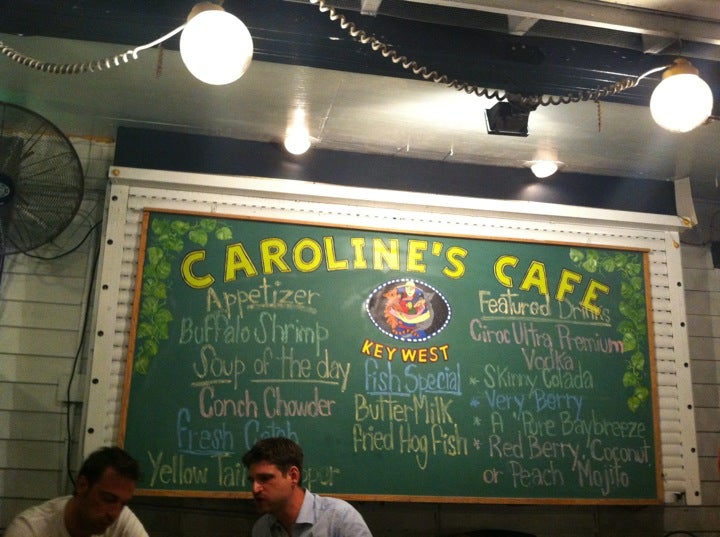 CAROLINE'S CAFE
Appetizer
Buffalo Shrimp
Soup of the day
Conch Chowder
Fresh Catch
Yellow Tail
KEY WEST
Fish Special
ButterMilk
Fried Hog Fish
Featured Drinks
Ciroc Ultra Premium
Vodka
* Skinny Colada
* Very Berry
* A "Pure Baybreeze
* Red Berry, Coconut,
or Peach Mojito